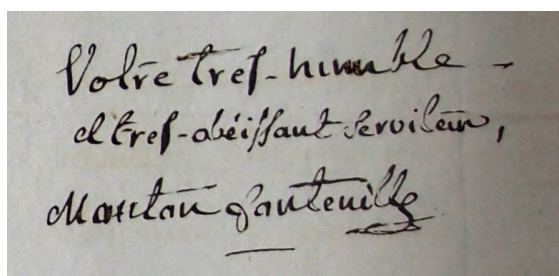 Votre tres-humble -
et tres-obéissant serviteur,
Montan d'anteuille